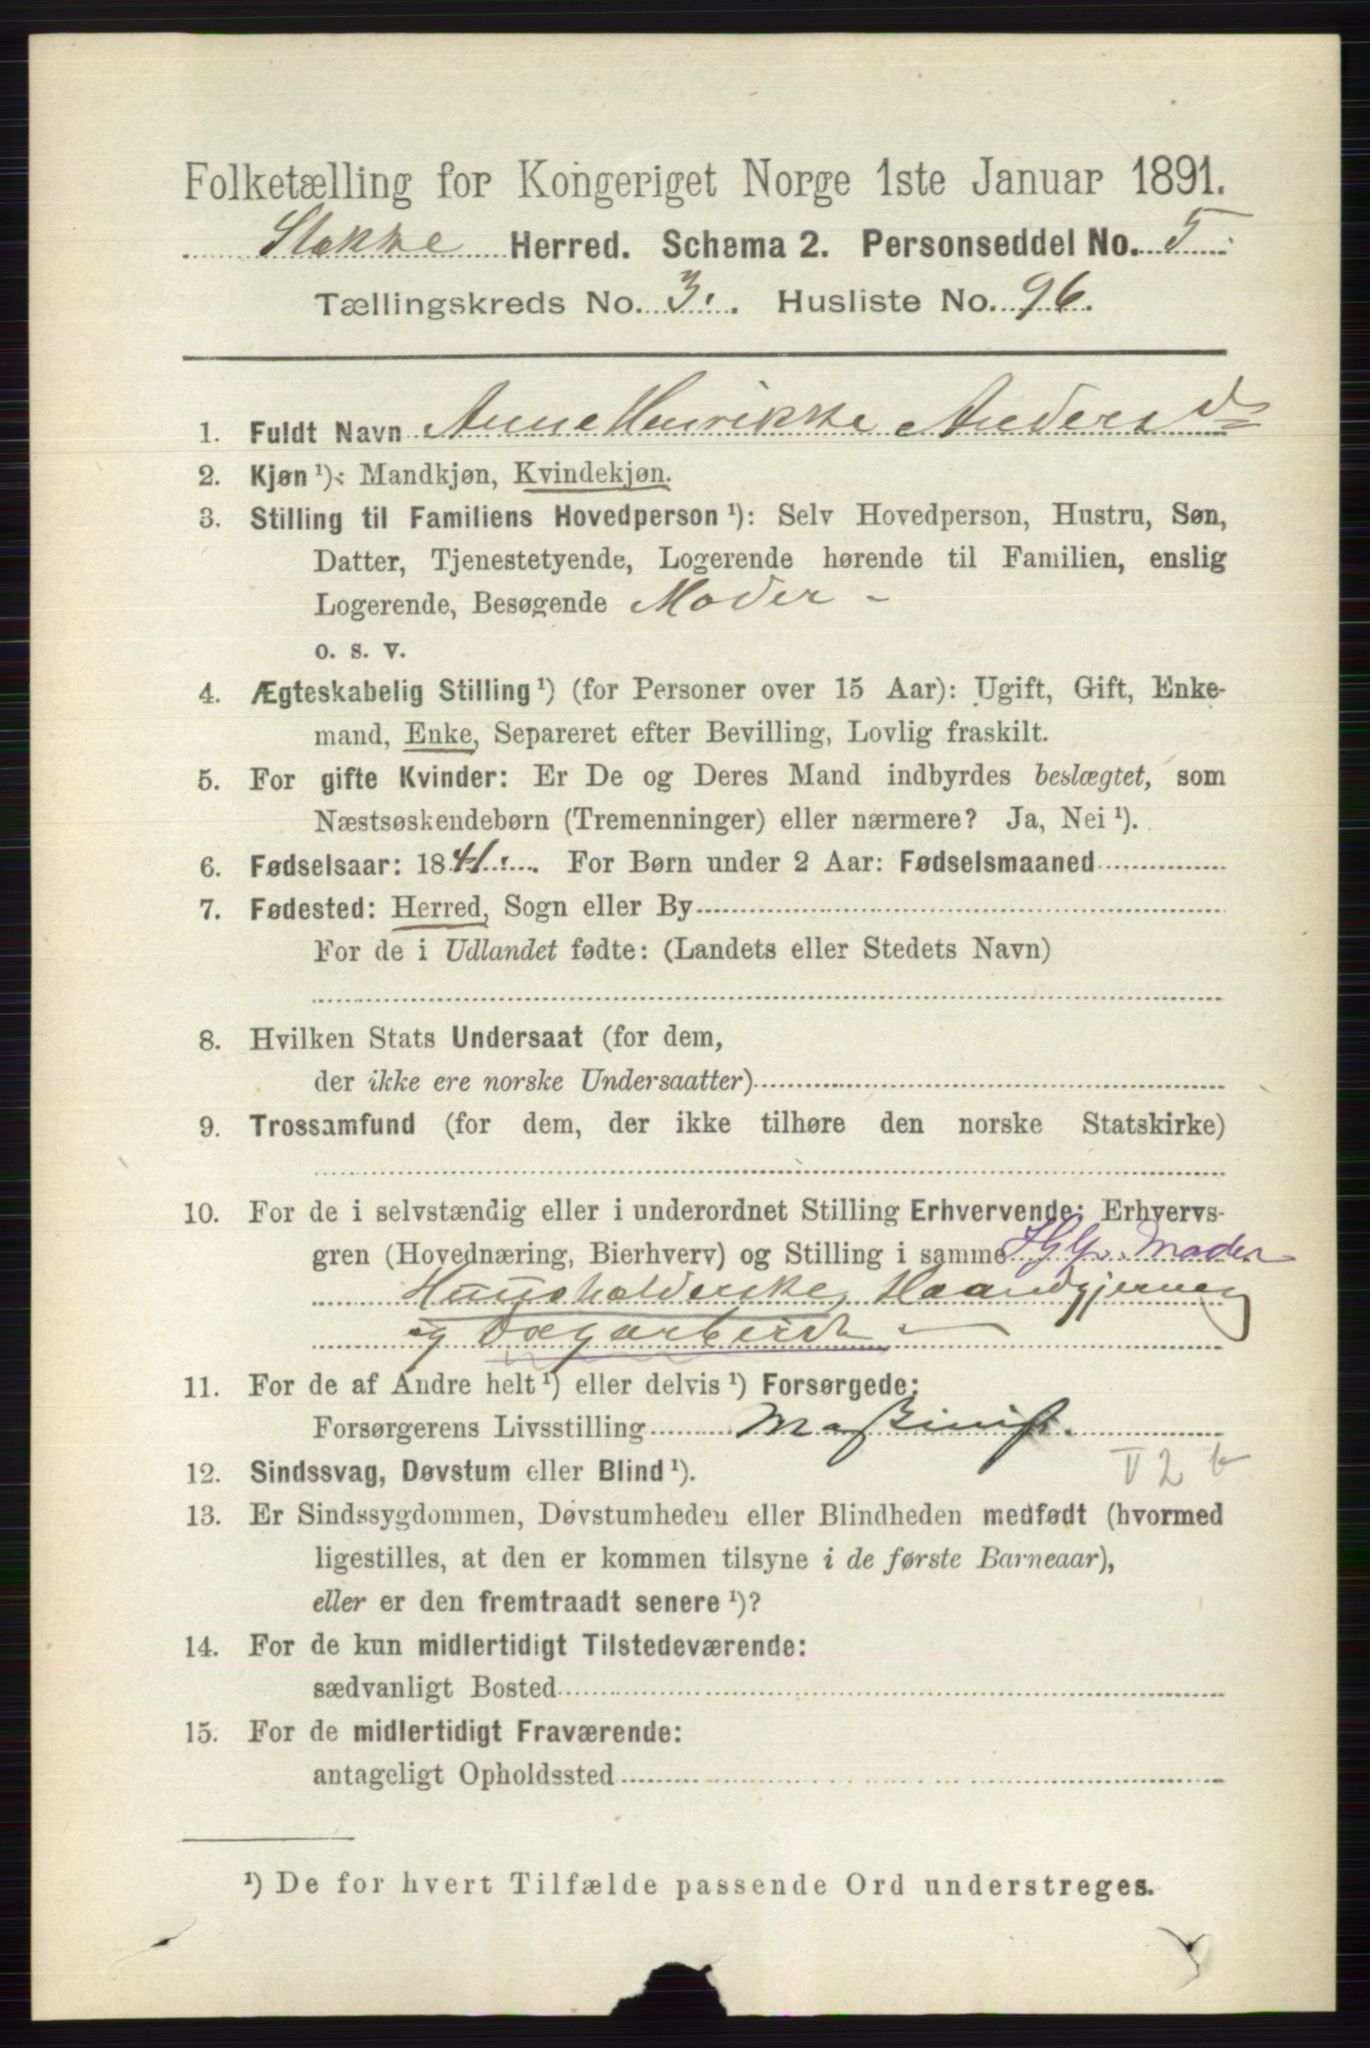 Folketælling for Kongeriget Norge 1ste Januar 1891.
Stokke Herred. Schema 2. Personseddel No. 5
Tællingskreds No. 3. Husliste No. 96.
1. Fuldt Navn Anne Henrikke Andersd
2. Kjøn ¹): Mandkjøn, Kvindekjøn.
3. Stilling til Familiens Hovedperson ¹): Selv Hovedperson, Hustru, Søn,
Datter, Tjenestetyende, Logerende hørende til Familien, enslig
Logerende, Besøgende Moder -
o. s. v.
4. Ægteskabelig Stilling ¹) (for Personer over 15 Aar): Ugift, Gift, Enke-
mand, Enke, Separeret efter Bevilling, Lovlig fraskilt.
5. For gifte Kvinder: Er De og Deres Mand indbyrdes beslægtet, som
Næstsøskendebørn (Tremenninger) eller nærmere? Ja, Nei ¹).
6. Fødselsaar: 1841. For Børn under 2 Aar: Fødselsmaaned
7. Fødested: Herred, Sogn eller By
For de i Udlandet fødte: (Landets eller Stedets Navn)
8. Hvilken Stats Undersaat (for dem,
der ikke ere norske Undersaatter)
9. Trossamfund (for dem, der ikke tilhøre den norske Statskirke)
10. For de i selvstændig eller i underordnet Stilling Erhvervende: Erhvervs-
gren (Hovednæring, Bierhverv) og Stilling i samme Moder
Huusholderske, Haandgjerning
og Dagarbeide
11. For de af Andre helt ¹) eller delvis ¹) Forsørgede:
Forsørgerens Livsstilling Maskinist.
12. Sindssvag, Døvstum eller Blind ¹). V 2 b
13. Er Sindssygdommen, Døvstumheden eller Blindheden medfødt (hvormed
ligestilles, at den er kommen tilsyne i de første Barneaar),
eller er den fremtraadt senere ¹)?
14. For de kun midlertidigt Tilstedeværende:
sædvanligt Bosted
15. For de midlertidigt Fraværende:
antageligt Opholdssted
¹) De for hvert Tilfælde passende Ord understreges.